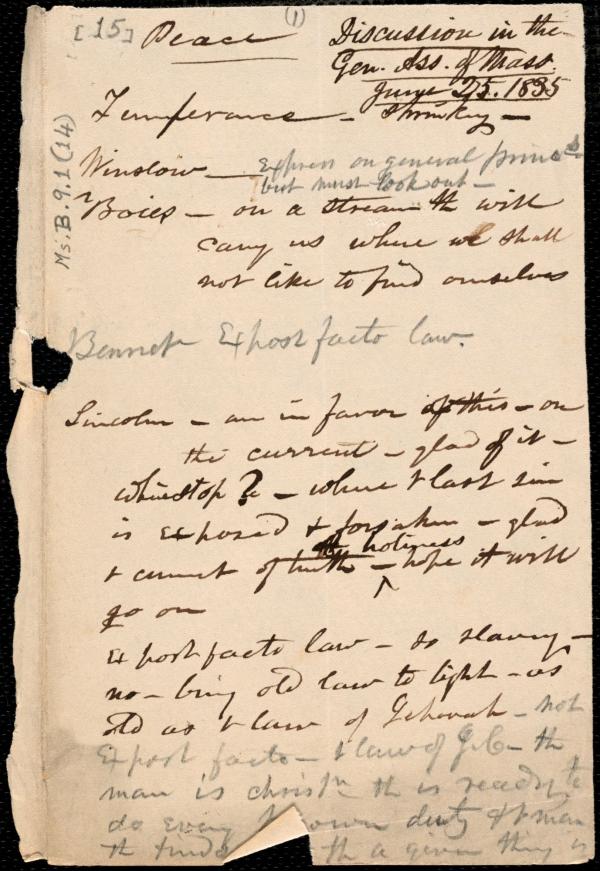 (1)
[15] Peace Discussion in the
Gen. Ass. of Mass.
June 25. 1835
Temperance - Shrinking -
Ms. B. 9.1 (14)
Winslow — Express on general princs
but must look out -
Boies - on a stream th will
carry us where we shall
not like to find ourselves
Bennet Ex post facto law.
Lincoln - am in favor of this - on
the current - glad of it -
where stop? - where t last sin
is exposed & forsaken - glad
t current of truth & holiness - hope it will
go on
Ex post facto law - so slavery -
no - bring old law to light - as
old as t law of Jehovah - not
Ex post facto - t law of - th
man is christn th is ready to
do every known duty & t man
th th a given thing is